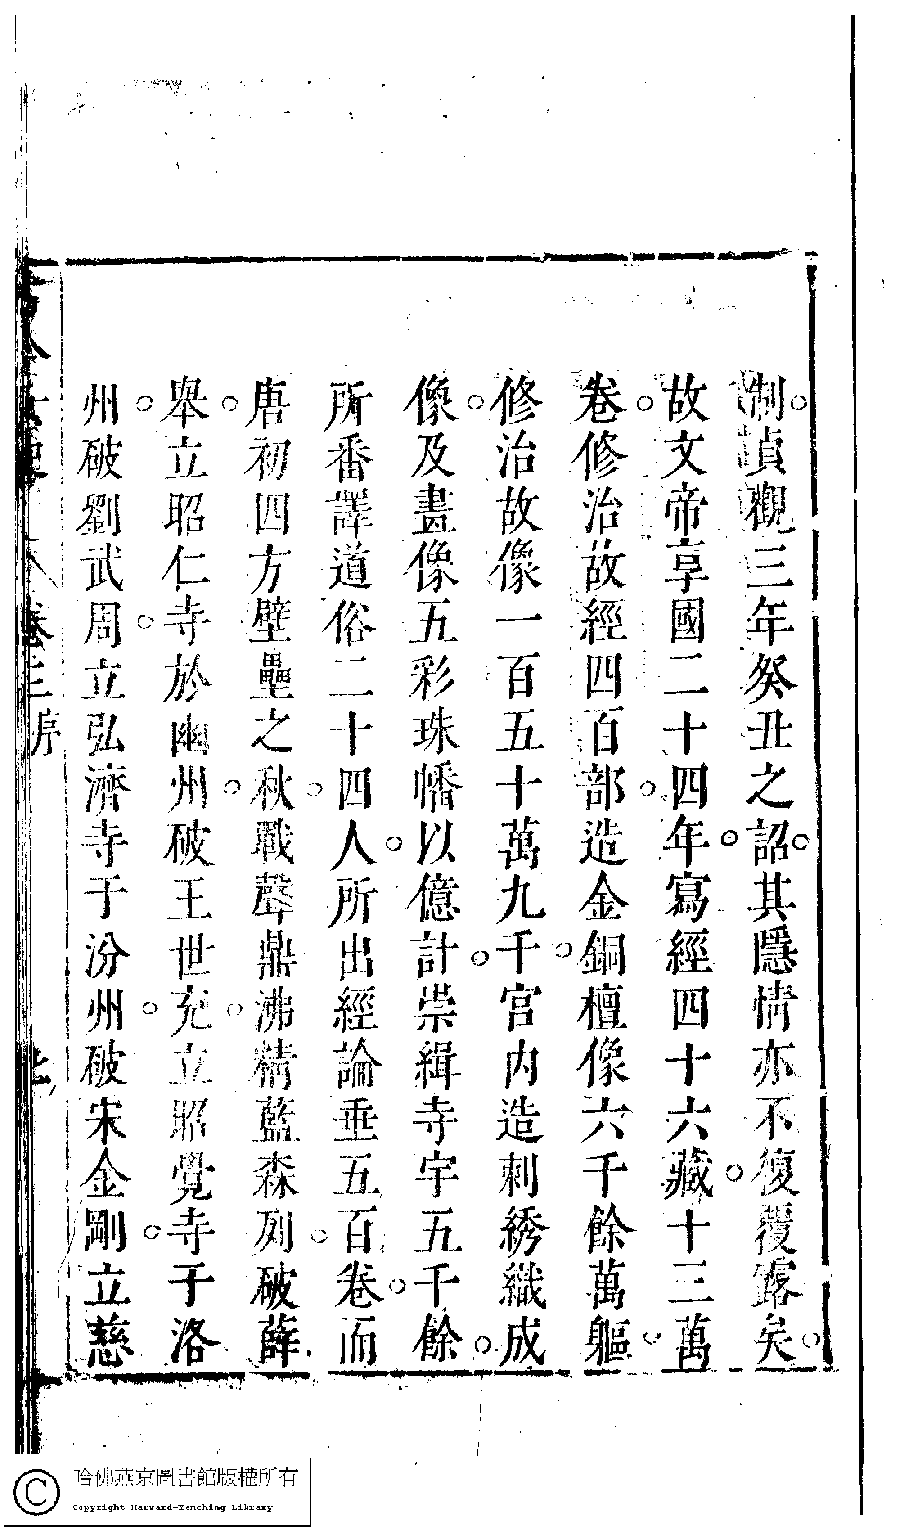 制貞觀三年癸丑之詔其隱情亦不復覆露矣
故文帝享國二十四年寫經四十六藏十三萬
卷修治故經四百部造金銅檀像六千餘萬軀
修治故像一百五十萬九千宮内造刺綉織成
像及畫像五彩珠幡以億計崇緝寺宇五千餘
所番譯道俗二十四人所出經論垂五百卷而
唐初四方壁壘之秋戰聲鼎沸精藍森列破薛
舉立昭仁寺於豳州破王世充立昭覺寺于洛
州破劉武周立弘濟寺于汾州破宋金剛立慈
卷三序
哈佛燕京圖書館版權所有
Copyright Harvard-Yenching Library